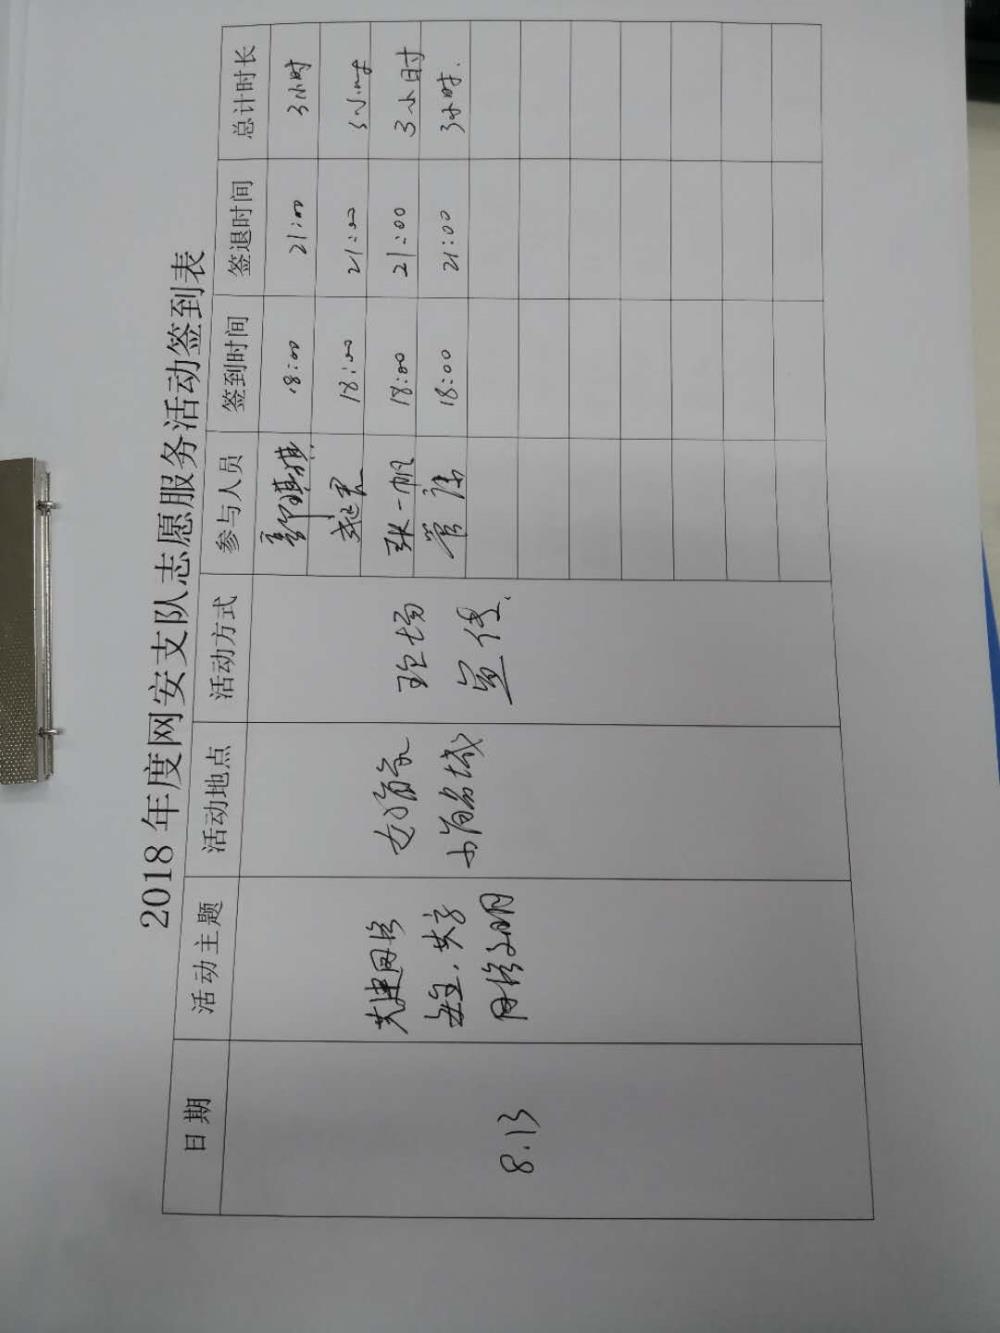 2018 年度网安支队志愿服务活动签到表
日期 活动主题 活动地点 活动方式 参与人员 签到时间 签退时间 总计时长
8.13
共建网络
安全,共享
网络文明
名城
现场
宣传.
18:00 21:00 3小时
18:00 21:00 3小时
张一帆 18:00 21:00 3小时
18:00 21:00 3小时.